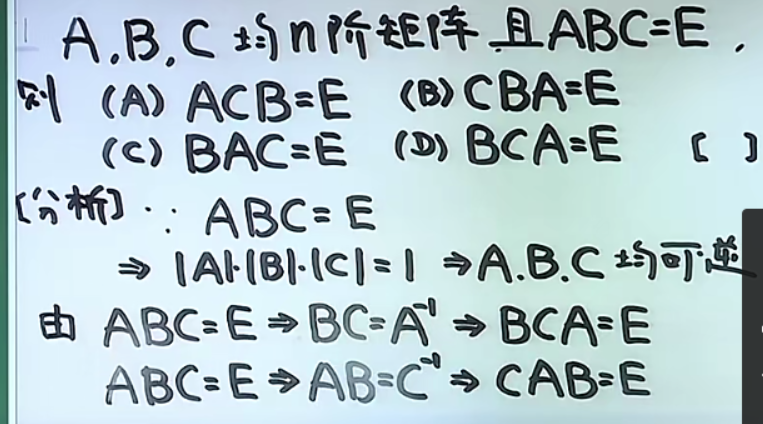 A,B,C 均n阶矩阵 且ABC=E,
则 (A) ACB=E (B) CBA=E
(C) BAC=E (D) BCA=E [ ]
[分析] ∵ ABC=E
⇒ |A|·|B|·|C|=1 ⇒A.B.C 均可逆
由 ABC=E⇒BC=A⁻¹ ⇒ BCA=E
ABC=E⇒AB=C⁻¹⇒ CAB=E